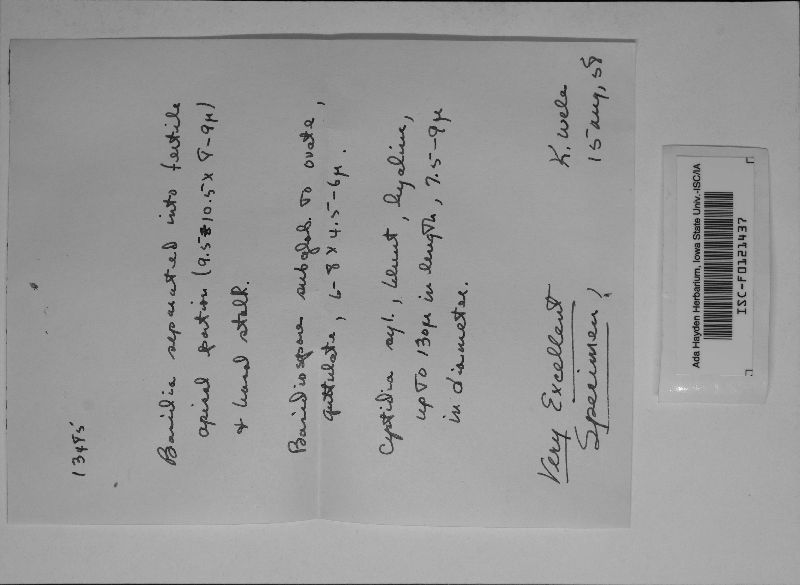 13485
Basidia separated into fertile
apical portion (9.5-10.5 x 8-9µ)
& basal stalk.
Basidiospores subglob. to ovate,
guttulate, 6-8 x 4.5-6µ.
Cystidia cyl., blunt, hyaline,
up to 130µ in length, 7.5-9µ
in diameter.
Very Excellent
Specimen!
K. Wells
15 Aug, 58
Ada Hayden Herbarium, Iowa State Univ.-ISC/IA
ISC-F0121437